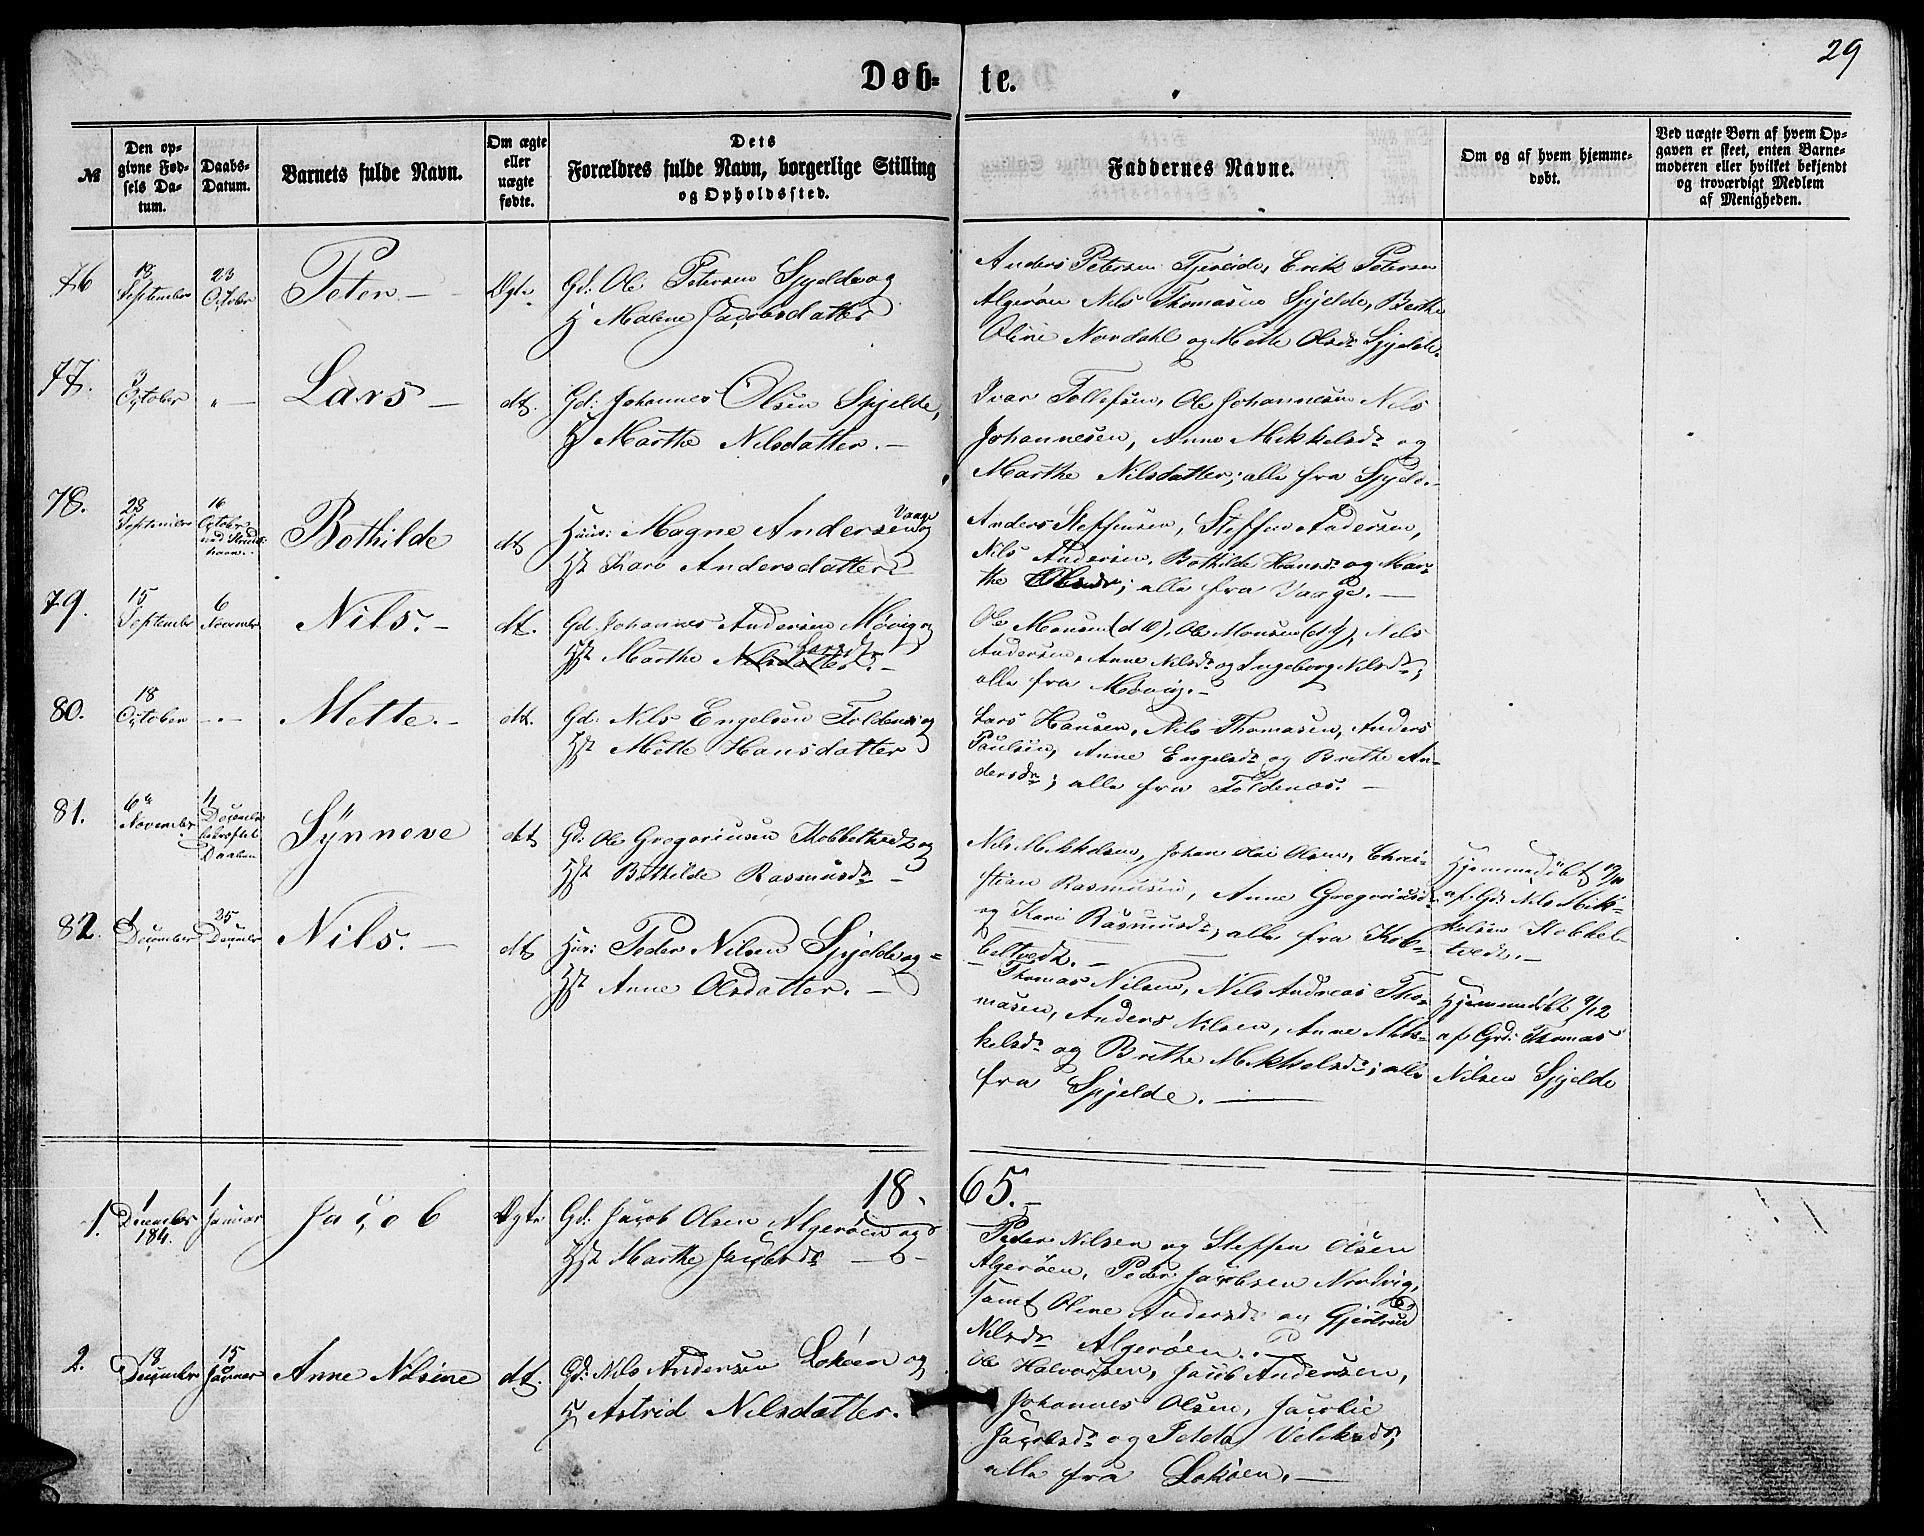 29
Døb= te.
№
Den op-
givne Fød-
sels Da-
tum.
Daabs-
Datum.
Barnets fulde Navn.
Om ægte
eller
uægte
fødte.
Dets
Forældres fulde Navn, borgerlige Stilling
og Opholdssted.
Faddernes Navne.
Om og af hvem hjemme-
døbt.
Ved uægte Børn af hvem Op-
gaven er skeet, enten Barne-
moderen eller hvilket bekjendt
og troværdigt Medlem
af Menigheden.
76
18
September
23
October
Peter.-
Ægte
Gd: Ole Petersen Spjeld og
H Malene Jacobsdatter
Anders Petersen Tjereide, Erik Petersen
Algerøen Nils Thomasen Spjelde, Berthe
Oline Nordahl og Mette Olsdr Spjelde.
77.
October
"
Lars -
dt.
Gd: Johannes Olsen Spjelde,
H Marthe Nilsdatter. -
Ivar Tollefsen, Ole Johannesen Nils
Johannesen, Anne Mikkelsdr og
Marthe Nilsdatter; alle fra Spjelde.
78.
28
September
16
October
Bothilde
dt
Huus: Magne Andersen Vaage og
Hst Kari Andersdatter
Anders Steffensen, Steffen Andersen,
Nils Andersen, Bothilde Hansdr og Mar-
the Olsdr; alle fra Vaage. -
79.
15
September
6
November
Nils. -
dt.
Gd. Johannes Andersen Møvig og
Hst Marthe Nilsdatter Larsdr. -
Ole Monsen (d Æ), Ole Monsen (d y), Nils
Andersen, Anne Nilsdr og Ingeborg Nilsdr;
alle fra Møvig. -
80.
18
October
- " -
Mette. -
dt.
Gd: Nils Engelsen Foldenes og
Hst Mette Hansdatter
Lars Hansen, Nils Thomasen, Anders
Paulsen, Anne Engelsdr og Brethe An-
dersdr; alle fra Foldenes. -
81.
6
November
December
bekræftet
Daaben
Synneve
dt
Gd: Ole Gregoriusen Kobbeltvedt og
Hst Bothilde Rasmusdr -
Nils Mikkelsen, Johan Olai Olsen, Chri-
stian Rasmusen, Anne Gregoriusdr
og Kari Rasmusdr; alle fra Kob-
beltvedt. -
Hjemmedøbt
af Gd Nils Mik-
kelsen Kobbel-
tvedt. -
82.
December
25
December
Nils. -
dt
Huus: Peder Nilsen Spjelde og
Hst Anne Olsdatter. -
Thomas Nilsen, Nils Andreas Tho-
masen, Anders Nilsen, Anne Mik-
kelsdr og Brethe Mikkelsdr; alle
fra Spjelde.
Hjemmedøbt 9/12
af Grd: Thomas
Nilsen Spjelde
18 65. -
1.
1
December
184.
1
Januar
Jacob
Ægte
Gd: Jacob Olsen Algerøen og
Hst Marthe Jacobsdr
Peder Nilsen og Steffen Olsen
Algerøen, Peder Jacobsen Nordvig,
samt Oline Andersdr og Gjertrud
Nilsdr Algerøen.
2.
December
15
Januar
Anne Nilsine
dt.
Gd: Nils Andersen Løkøen og
H Astrid Nilsdatter.
Ole Halvorsen, Jacob Andersen,
Johannes Olsen,
Jacobsdr og
alle fra Løkøen. -